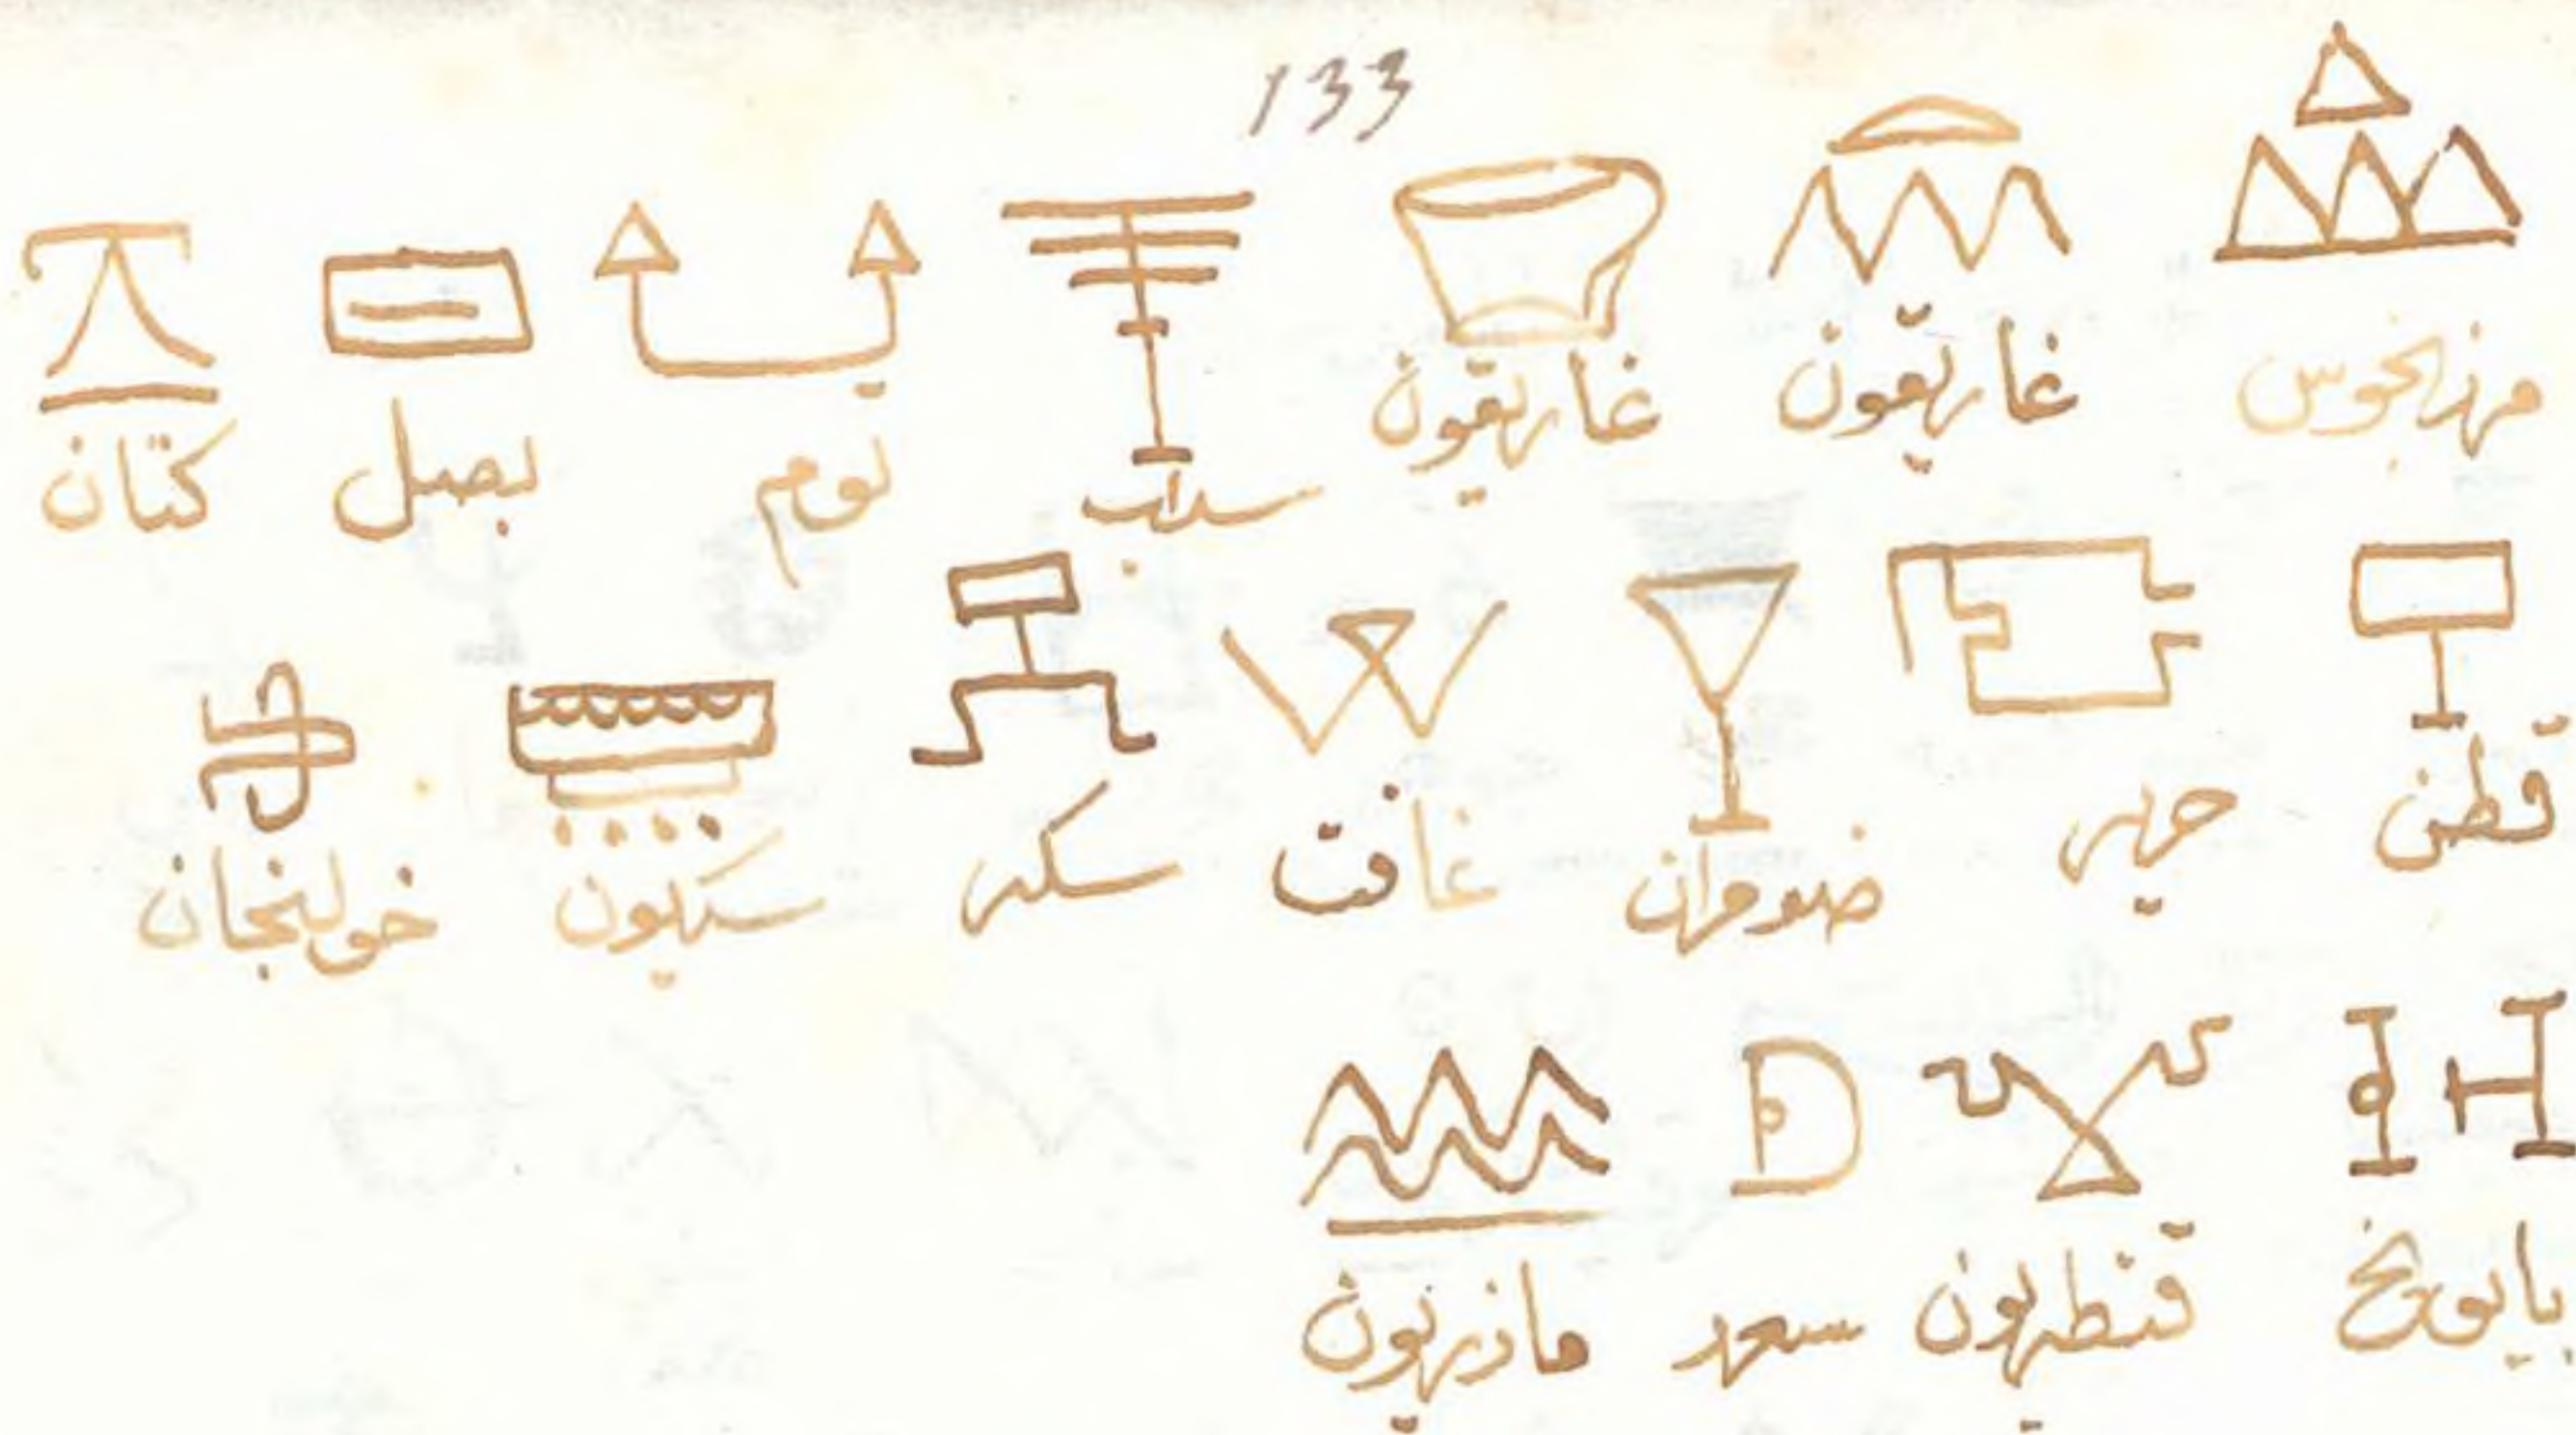 133
مرزنجوش غاريقون غاريقون سداب ثوم بصل كتان
قطن حرير ضومران غافت سكر سكيون خولنجان
قنطريون سعد مازريون